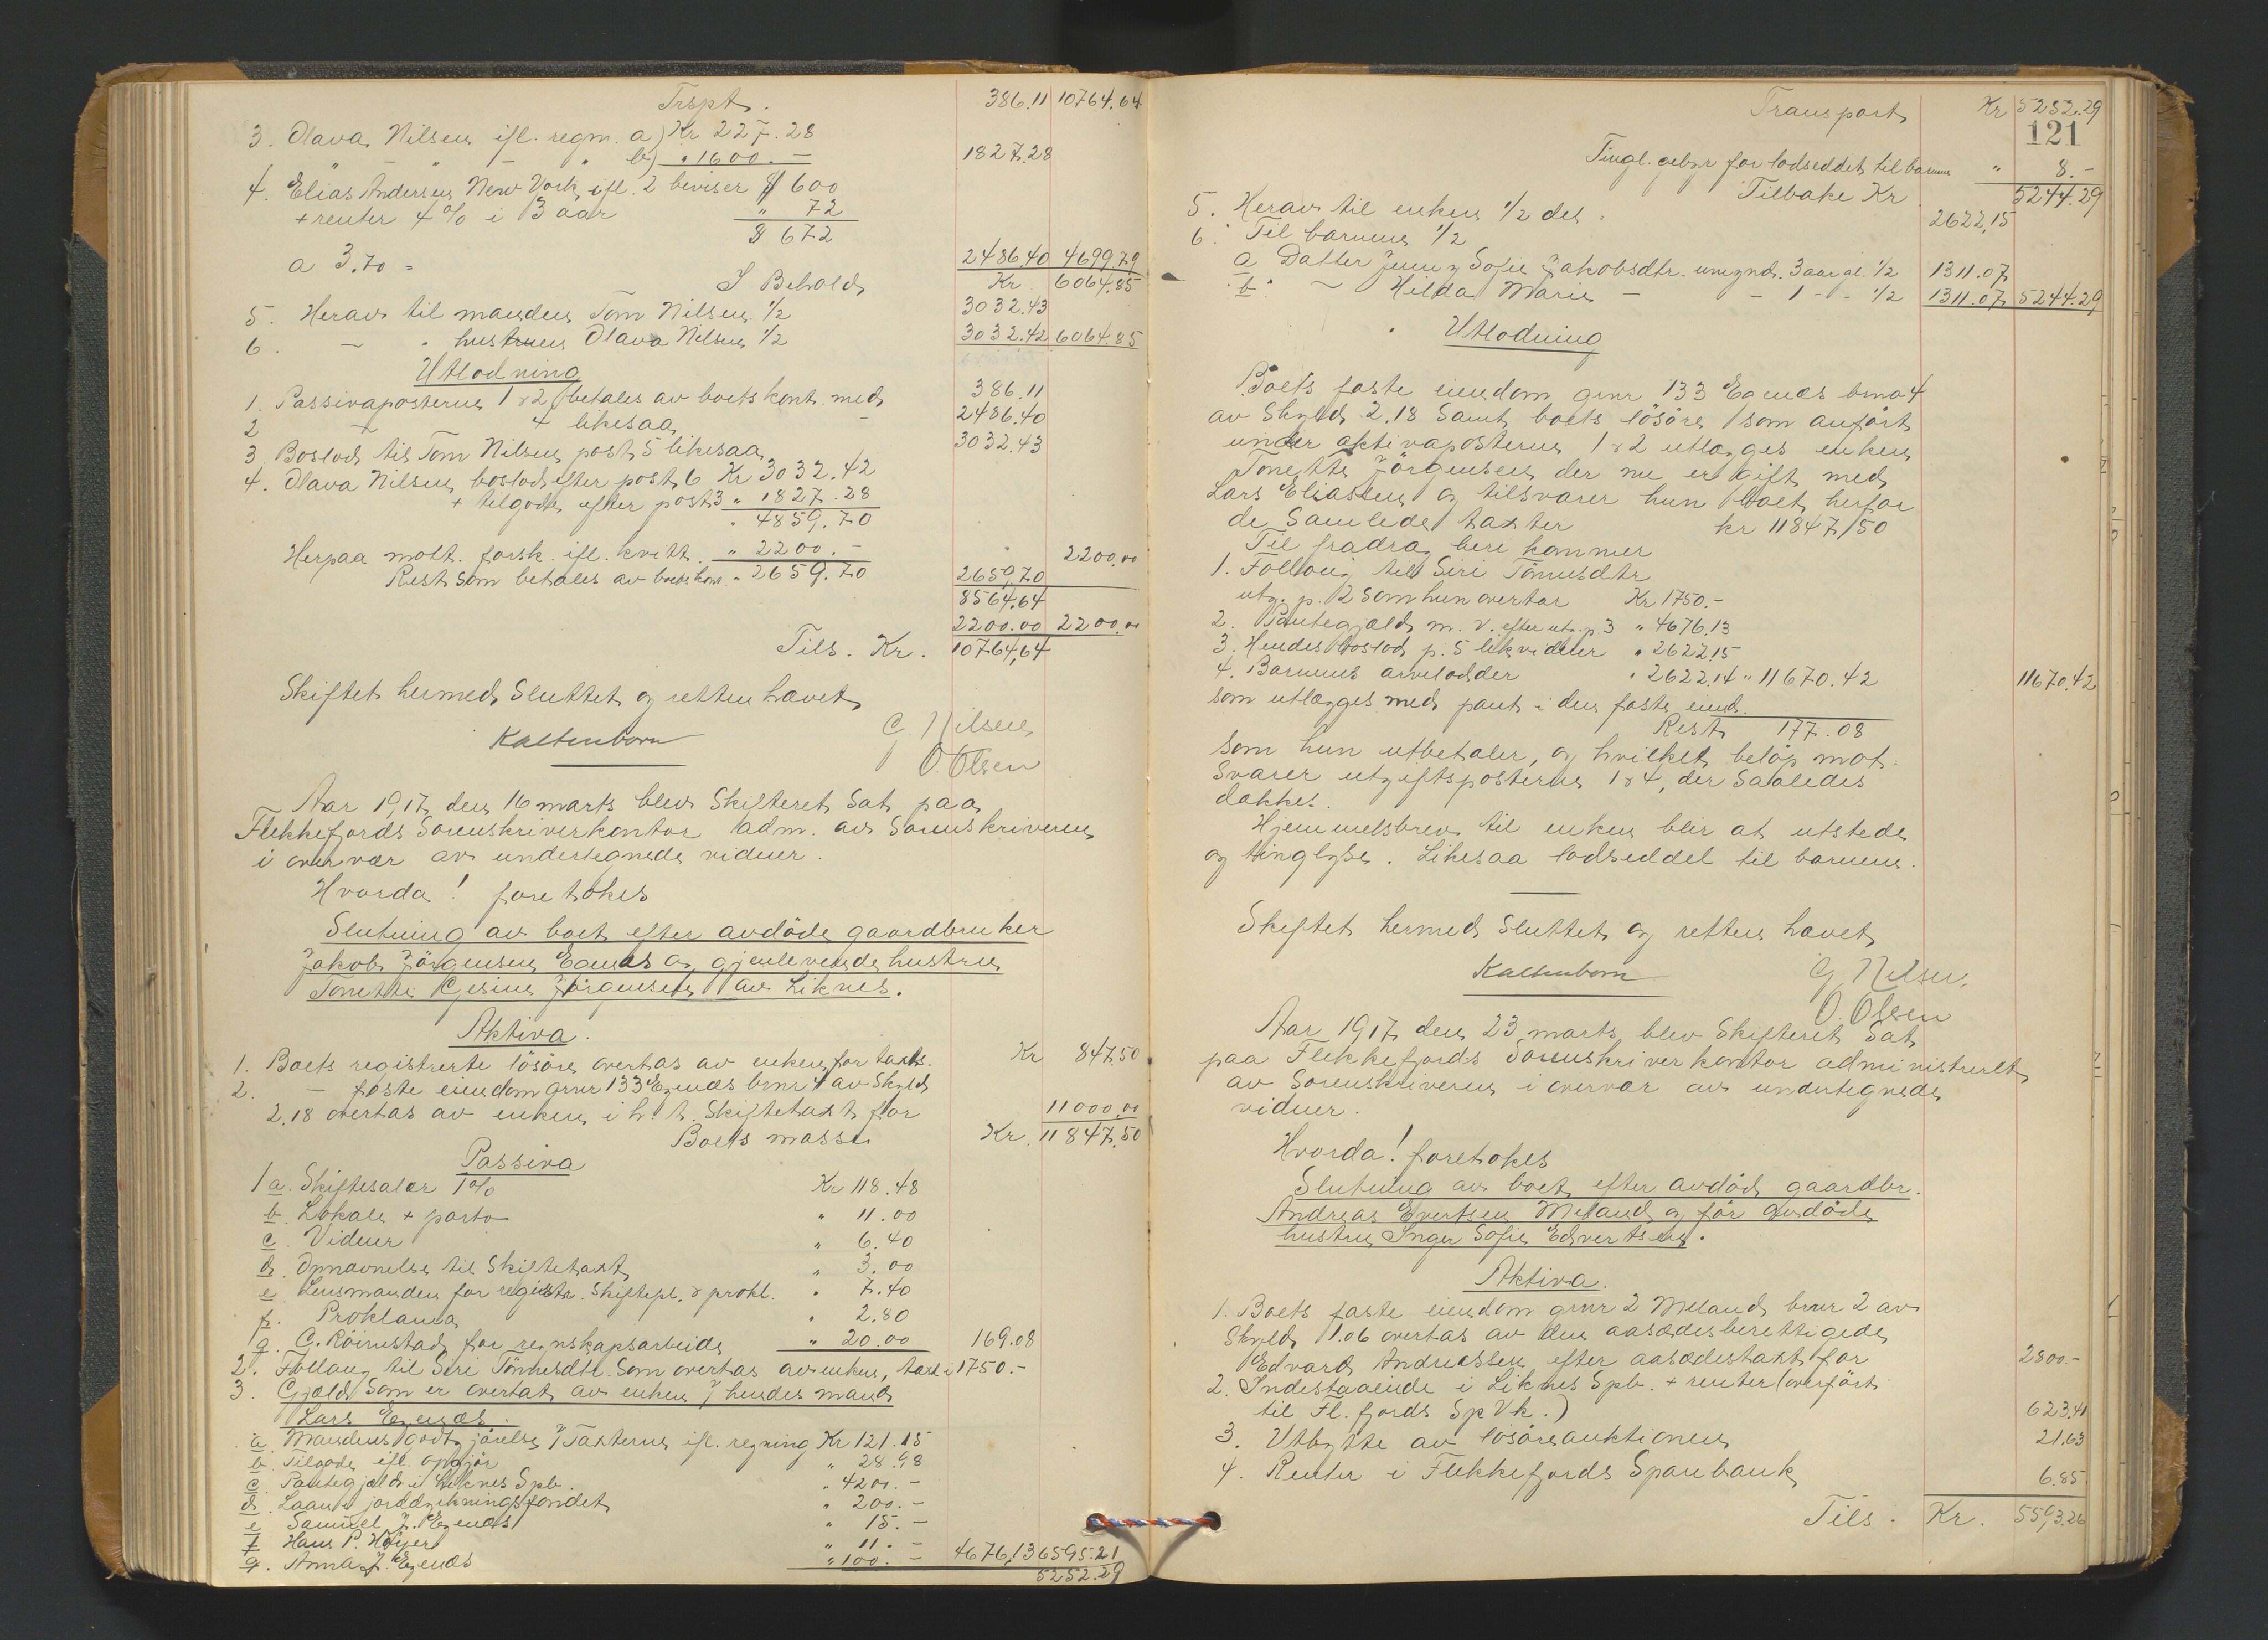 Trspt. 386.11 10764.64
3. Olava Nilsen ifl. regn. a) Kr 227.28
" - " - " b) " 1600.- 1827.28
4. Elias Andersen New York ifl. 2 beviser $ 600
+ renter 4% i 3 aar " 72
$ 672
a 3.70 = 2486.40 4699.79
I Behold Kr. 6064.85
5. Herav til manden Tom Nilsen 1/2 3032.43
6. - " hustruen Olava Nilsen 1/2 3032.42 6064.85
Utlodning
1. Passivaposterne 1 & 2 betales av boets kont. med 386.11
2 - 4 likesaa - 2486.40
3 Boslod til Tom Nilsen post 5 likesaa 3032.43
4. Olava Nilsens boslod efter post 6 Kr 3032.42
+ tilgode efter post 3 " 1827.28
" 4859.70
Herpaa mott. forsk. ifl. kvitt. " 2200.- " 2200.00
Rest som betales av boets kon. " 2659.70 2659.70
8564.64
2200.00 2200.00
Tils. Kr. 10764,64
Skiftet hermed Sluttet og retten hævet
Kaltenborn G. Nilsen
O. Olsen
Aar 1917 den 16 marts blev Skifteret Sat paa
Flekkefjords Sorenskriverkontor adm. av Sorenskriveren
i overvær av undertegnede vidner.
Hvorda! foretokes
Slutning av boet efter avdöde gaardbruker
Jakob Jörgensen Egenæs og gjenlevende hustru
Tonette Gesine Jörgensen av Liknes.
Aktiva.
1. Boets registrerte lösöre overtas av enken for takst. Kr 847.50
2. - faste eiendom grnr 133 Egenæs brnr 4 av Skyld
2.18 overtas av enken i h. t. Skiftetakst for 11000.00
Boets masse Kr. 11847.50
Passiva
1 a. Skiftesalær 1% Kr 118.48
b. Lokale + porto " 11.00
c. Vidner " 6.40
d. Opnævnelse til Skiftetakst " 3.00
e. Lensmanden for registr. Skiftepl. & prokl. " 7.40
f. Proklama " 2.80
g. C. Röinestad for regnskapsarbeide " 20.00 169.08
2. Föllaug til Siri Tönnesdtr. Som overtas av enken, takst i 1750.-
3. Gjæld Som er overtat av enken & hendes mand
Lars Egenæs.
a. Mandens godtgjörelse & Taxterne ifl. regning Kr 121.15
b. Tilgode ifl. opgjör " 28.98
c. Pantegjæld i Liknes Spb. " 4200.-
d. Laan i jorddyrkningsfondet " 200.-
e Samuel J. Egenæs " 15.-
f Hans P. Höyer " 11.-
g. Anna J. Egenæs " 100.- 4676,13 6595.21
5252.29
Transport Kr 5252.29
121
Tingl. gebyr for lodseddel til barnene " 8.-
Tilbake Kr 5244.29
5. Herav til enken 1/2 del. 2622,15
6. Til barnene 1/2
a Datter Jenny Sofie Jakobsdtr. umynd. 3 aar gl. 1/2 1311.07
b " - Hilda Marie - - 1 - - 1/2 1311.07 5244.29
Utlodning
Boets faste eiendom grnr 133 Egenæs brno 4
av Skyld 2.18 Samt boets lösöre som anfört
under aktivaposterne 1 & 2 utlægges enken
Tonette Jörgensen der nu er gift med
Lars Eliassen og tilsvarer hun boet herfor
de Samlede takster kr 11847,50
Til fradrag heri kommer
1. Föllaug til Siri Tönnesdtr
utg. p. 2 som hun overtar Kr 1750.-
2. Pantegjæld m. v. efter utg. p. 3 " 4676.13
3. Hendes boslod p. 5 likviderer " 2622.15
4. Barnenes arvelodder " 2622.14 " 11670.42 11670.42
som utlægges med pant i den faste eiend.
Rest 177.08
Som hun utbetaler, og hvilket belöp mot-
svarer utgiftsposterne 1 & 4, der Saaledes
dækkes.
Hjemmelsbrev til enken blir at utstede
og tinglyse. Likesaa lodseddel til barnene.
Skiftet hermed Sluttet og retten hævet
Kaltenborn G. Nilsen,
O. Olsen
Aar 1917 den 23 marts blev Skifteret Sat
paa Flekkefjords Sorenskriverkontor administreret
av Sorenskriveren i overvær av undertegnede
vidner.
Hvorda! foretokes
Slutning av boet efter avdöd gaardbr.
Andreas Evertsen Meland og för avdöde
hustru Inger Sofie Edvertsen.
Aktiva.
1. Boets faste eiendom grnr 2 Meland brnr 2 av
Skyld 1.06 overtas av den aasædesberettigede
Edvard Andreassen efter aasædestakst for 2800.-
2. Indestaaende i Liknes Spb. + renter (overfört
til Fl.fjords Sp Vk.) 623.41
3. Utbytte av lösöreauktionen 21.63
4. Renter i Flekkefjords Sparebank 6.85
Tils. Kr. 5593.26